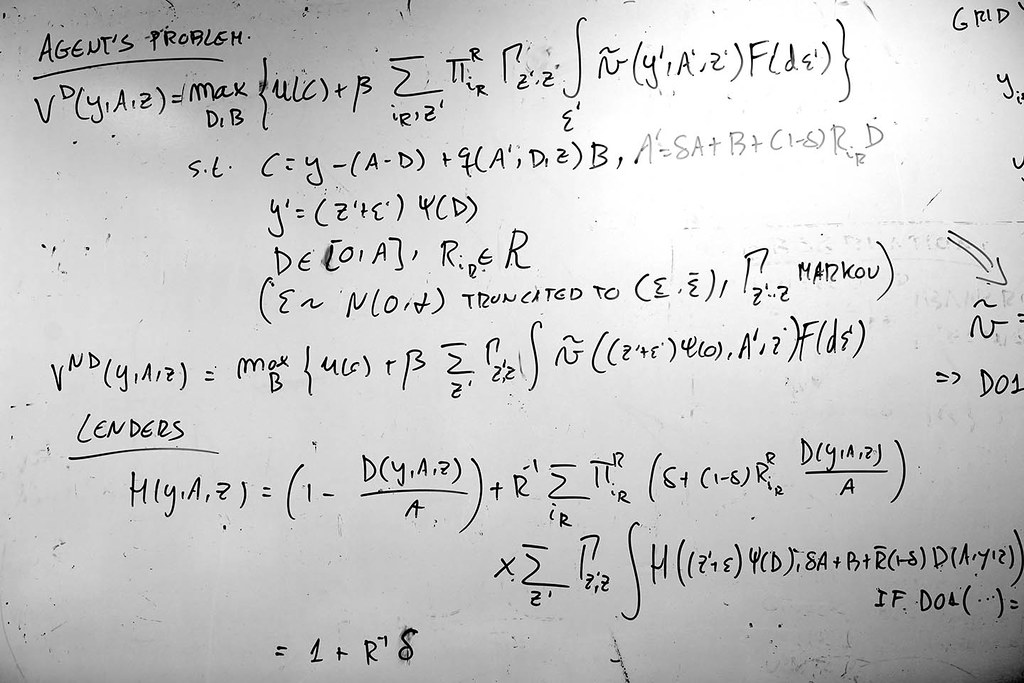 AGENT'S PROBLEM.
V^D(y,A,z) = max_{D,B} { u(c) + β Σ_{i_R,z'} Π^R_{i_R} Γ_{z',z} ∫_{ε'} ṽ(y',A',z') F(dε') }
s.t. C = y - (A-D) + q(A',D,z) B, A' = δA + B + (1-δ) R_{i_R} D
y' = (z'+ε') Ψ(D)
D ∈ [0,A], R_{i_R} ∈ R
TRUNCATED TO (ε, ε̄), Γ_{z',z} MARKOV)
V^{ND}(y,A,z) = max_B { u(c) + β Σ_{z'} Γ_{z',z} ∫ ṽ((z'+ε')Ψ(0), A', z') F(dε')
LENDERS
H(y,A,z) = (1 - D(y,A,z)/A) + R^{-1} Σ_{i_R} Π^R_{i_R} (δ + (1-δ) R^R_{i_R} D(y,A,z)/A)
× Σ_{z'} Γ_{z',z} ∫ H((z'+ε) Ψ(D), δA + B + R̄(1-δ) D(A,y,z))
IF D01(...) =
= 1 + R^{-1} δ
GRID
ṽ =
=> D01